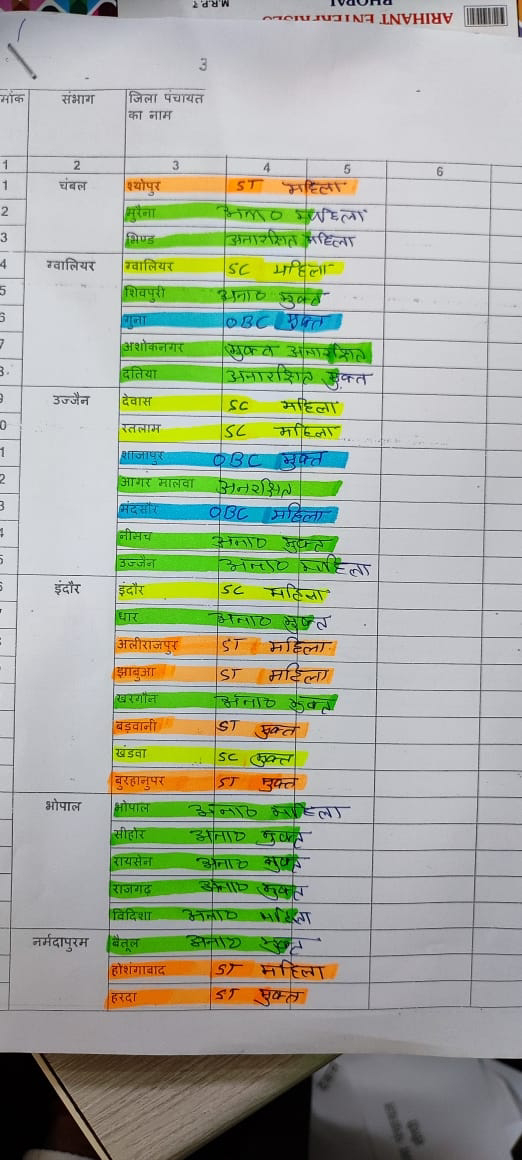 ARIHANT ENTERPRISES
BHOPAL
M.R.P. ₹
3
संभाग जिला पंचायत
का नाम
1 2 3 4 5 6
1 चंबल श्योपुर ST महिला
2 मुरैना अना० महिला
3 भिण्ड अनारक्षित महिला
4 ग्वालियर ग्वालियर SC महिला
5 शिवपुरी अना० मुक्त
6 गुना OBC मुक्त
7 अशोकनगर मुक्त अनारक्षित
8. दतिया अनारक्षित मुक्त
9 उज्जैन देवास SC महिला
0 रतलाम SC महिला
1 शाजापुर OBC मुक्त
2 आगर मालवा अनरक्षित
3 मंदसौर OBC महिला
4 नीमच अना० मुक्त
5 उज्जैन अना० महिला
6 इंदौर इंदौर SC महिला
धार अना० मुक्त
अलीराजपुर ST महिला
झाबुआ ST महिला
खरगौन अना० मुक्त
बड़वानी ST मुक्त
खंडवा SC मुक्त
बुरहानुपर ST मुक्त
भोपाल भोपाल अना० महिला
सीहोर अना० मुक्त
रायसेन अना० मुक्त
राजगढ़ अना० मुक्त
विदिशा अना० महिला
नर्मदापुरम बैतूल अना० मुक्त
होशंगाबाद ST महिला
हरदा ST मुक्त